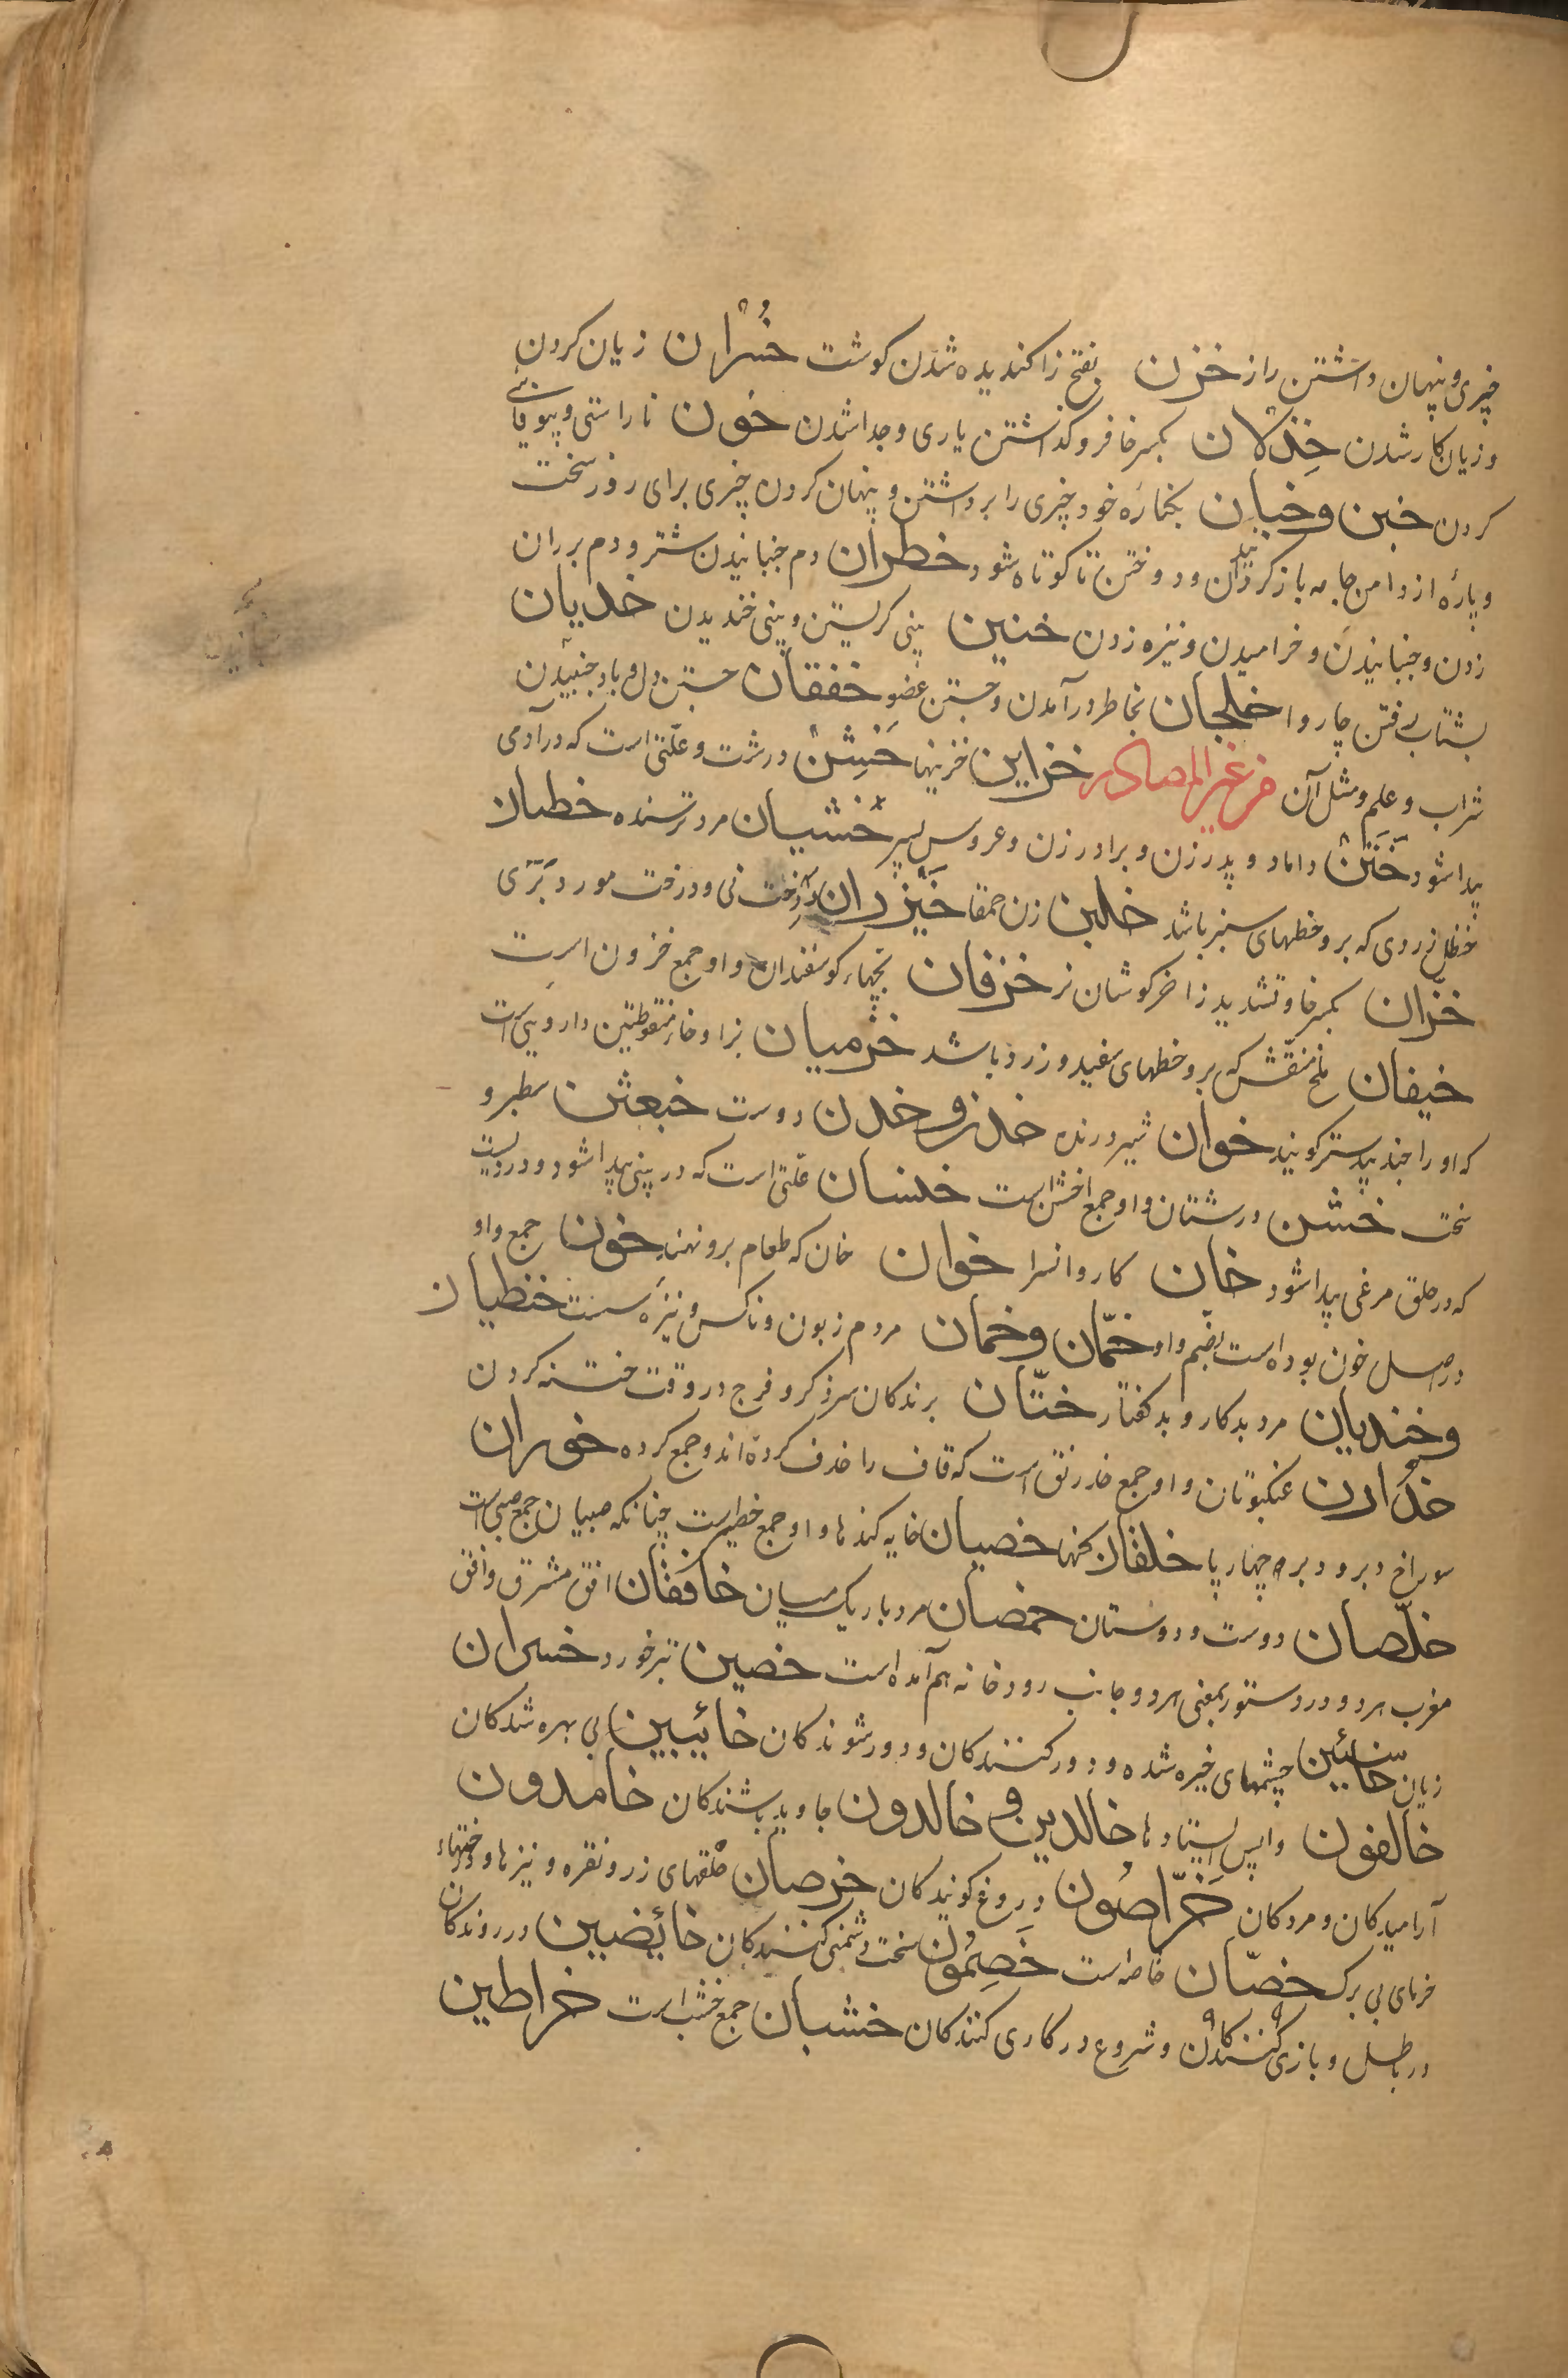 چیزی و پنهان داشتن راز خزن بفتح زا کندیده شدن کوشت خُسْران زیان کردن
و زیان کار شدن خِذْلان بکسر خا فرو کذاشتن یاری و جدا شدن خون ناراستی و بیوفائی
کردن خبن و خبان بکناره خود چیزی را برداشتن و پنهان کردن چیزی برای روز سخت
و پارۀ از دامن جامه باز کردانیدن و دوختن تا کوتاه شود خطران دم جنبانیدن شتر و دم بر ران
زدن و جنبانیدن و خرامیدن و نیزه زدن خنین ببینی کریستن و ببینی خندیدن خدیان
بشتاب رفتن چاروا خلجان بخاطر در آمدن و جستن عضو خفقان جستن دل و باد و جنبیدن
شراب و علم و مثل آن من غیر المصادر خزاین خزینها خَشِنْ درشت و علتی است که در آدمی
پیدا شود خَتَنْ داماد و پدر زن و برادر زن و عروس پسر خشیان مرد ترسنده خطبان
حنظل زردی که برو خطهای سبز باشد خلبن زن حمقا خَیْزران درخت نی و درخت مورد بَرّی
خزّان بکسر خا و تشدید زا خرکوشان نر خرفان بچهاء کوسفندان و او جمع خروف است
خیفان ملخ منقش که برو خطهای سفید و زرد باشد خزمیان بزا و خاء منقوطتین دارویی است
که او را جند بیدستر کویند خوان شیر درنده خدن و خدن دوست خبعثن سطبر و
سخت خشن درشتان و او جمع اخشن است خنسان علتی است که در بینی پیدا شود و دردیست
که در حلق مرغی پیدا شود خان کاروانسرا خوان خان که طعام برو نهند خون جمع و او
در اصل خون بوده است بضم واو خمّان و خمان مردم زبون و ناکس و نیزه سست خنظیان
و خندیان مرد بدکار و بد کفتار ختّان برندکان سر ذکر و فرج در وقت ختنه کردن
خدارن عنکبوتان و او جمع خدرنق است که قاف را حذف کرده اند و جمع کرده خوران
سوراخ دبر و دبره چهارپا خلقان کهنها خصیان خایه کندها و او جمع خصی است چنانکه صبیان جمع صبی است
خلّصان دوست و دوستان خمصان مرد باریک میان خافقان افق مشرق و افق
مغرب هر دو و در دستور بمعنی هر دو جانب رودخانه هم آمده است خصین تبر خورد خسران
زیان خاسئین چشمهای خیره شده و دور کنندکان و دور شوندکان خائبین بی بهره شدکان
خالفون واپس ایستادها خالدین و خالدون جاوید باشندکان خامدون
آرامیدکان و مردکان خَرّاصُون دروغ کویندکان خرصان حلقهای زر و نقره و نیزها و
خرمای بی برک خصّان خاصه است خَصِمُون سخت دشمنی کنندکان خائضین در روندکان
در باطل و بازی کنندکان و شروع در کاری کنندکان خشبان جمع خشب است خراطین